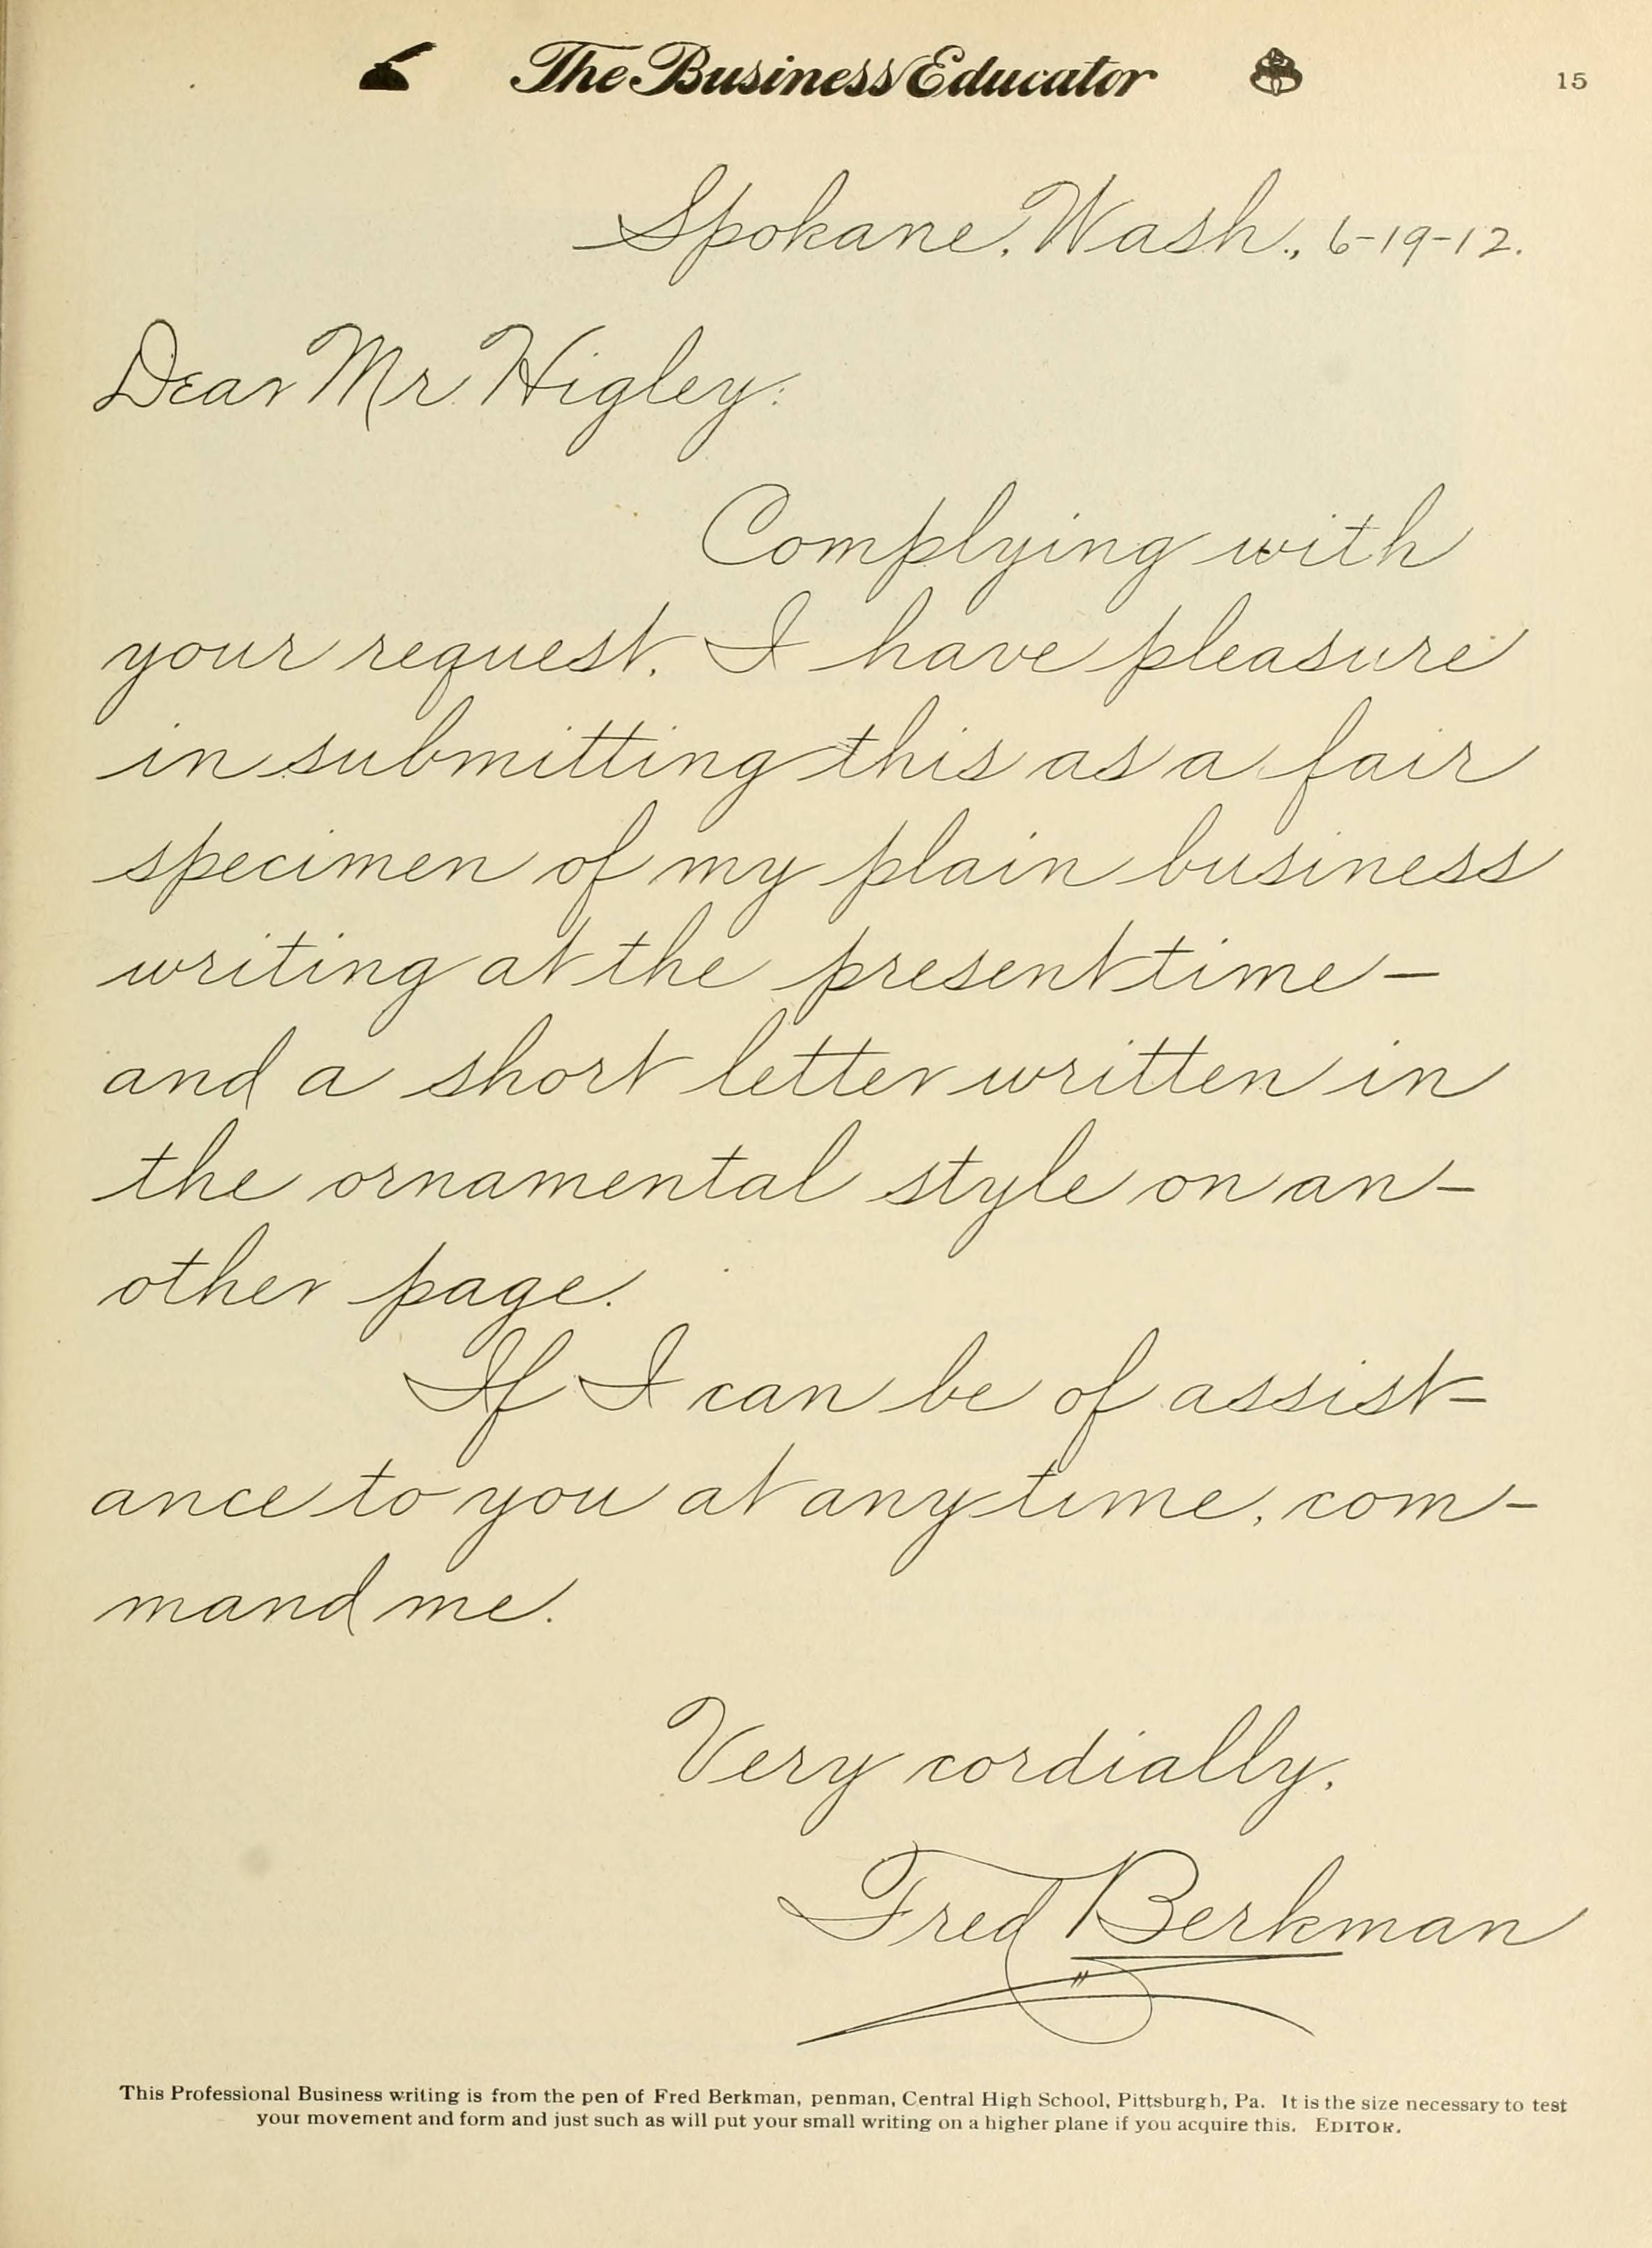 The Business Educator 15
Spokane, Wash., 6-19-12.
Dear Mr. Higley:
Complying with
your request, I have pleasure
in submitting this as a fair
specimen of my plain business
writing at the present time—
and a short letter written in
the ornamental style on an-
other page.
If I can be of assist-
ance to you at any time, com-
mand me.
Very cordially,
Fred Berkman
This Professional Business writing is from the pen of Fred Berkman, penman, Central High School, Pittsburgh, Pa. It is the size necessary to test
your movement and form and just such as will put your small writing on a higher plane if you acquire this. EDITOR.